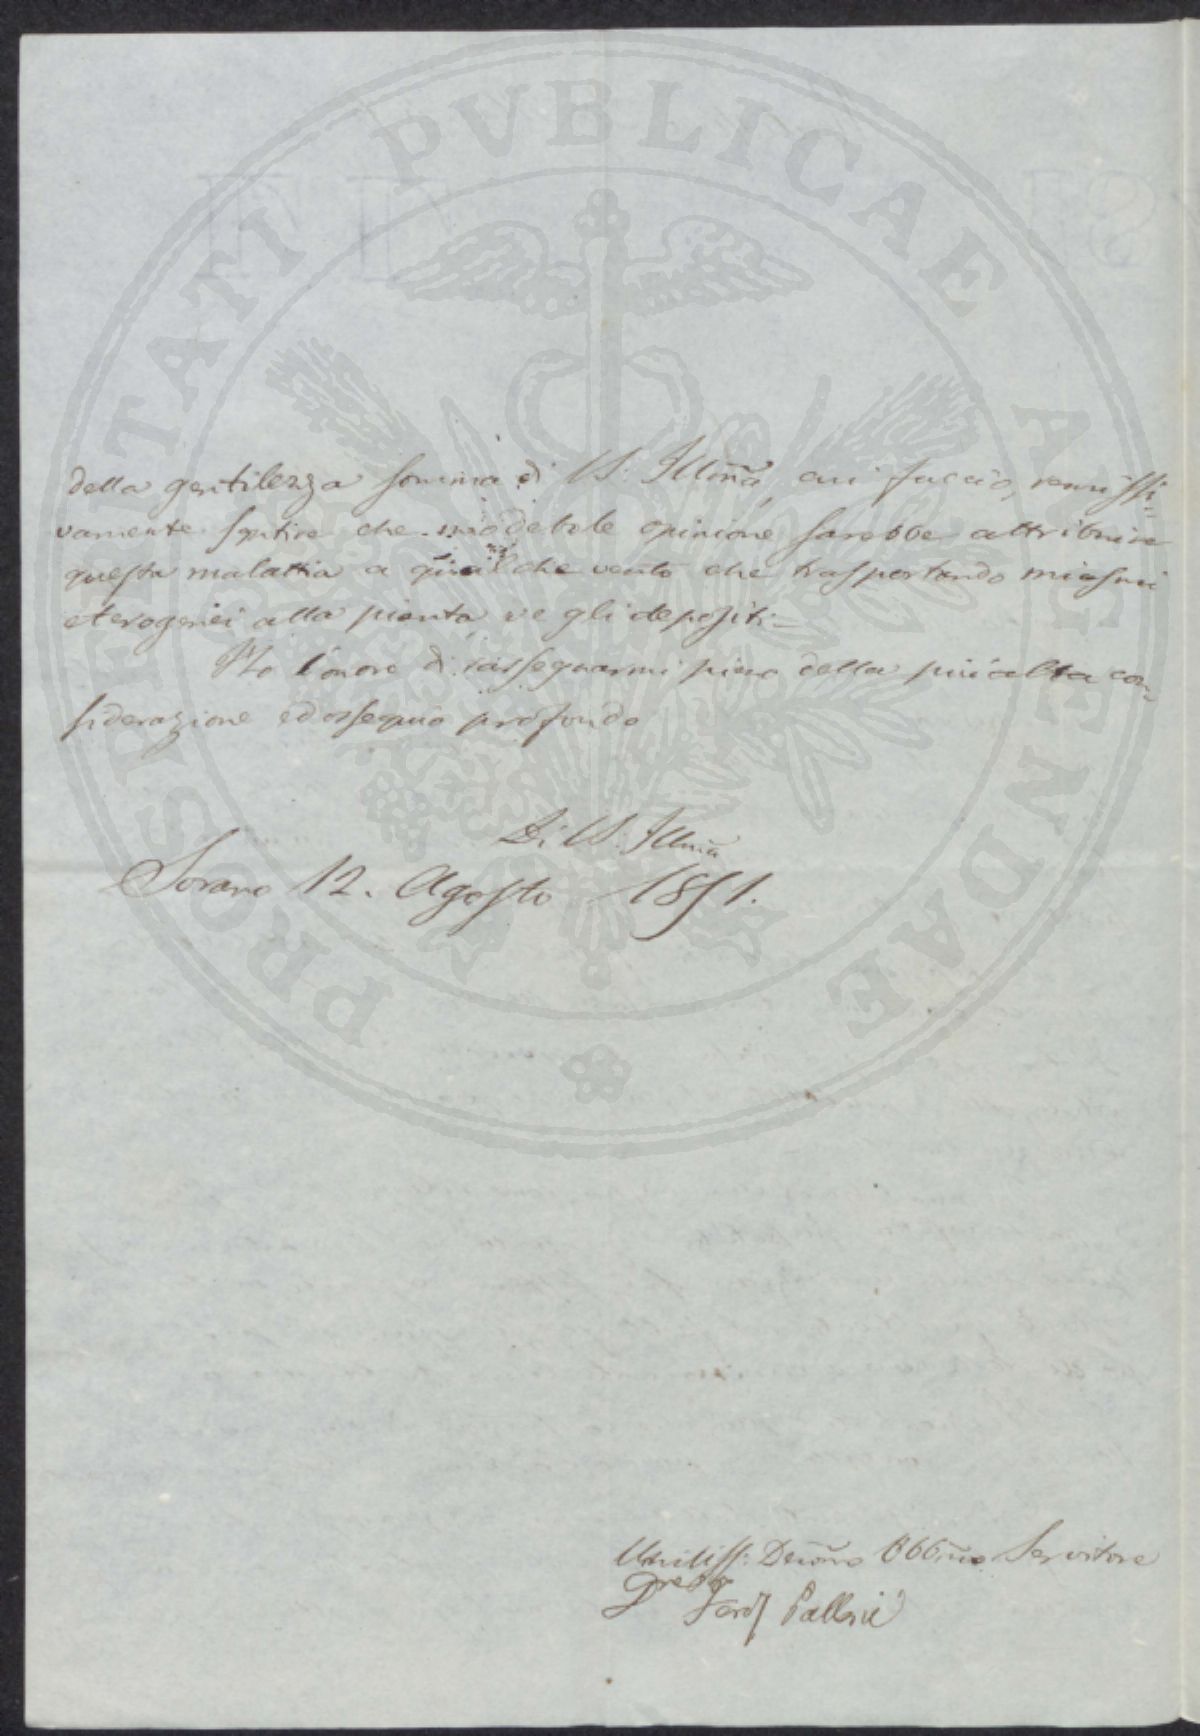 PROSPERITATI PVBLICAE AVGENDAE
della gentilezza somma di V.S. Illm̃a, cui faccio remissi=
vamente sentire che mio debole opinione sarebbe attribuire
questa malattia a qualche vento che trasportando miasmi
eterogenei alla pianta ve gli depositi=
Ho l'onore di rassegnarmi pieno della più alta con=
siderazione ed ossequio profondo
Di V.S. Illm̃a
Sorano 12. Agosto 1851.
Umiliss: Devm̃o Obbm̃o Servitore
Ferd